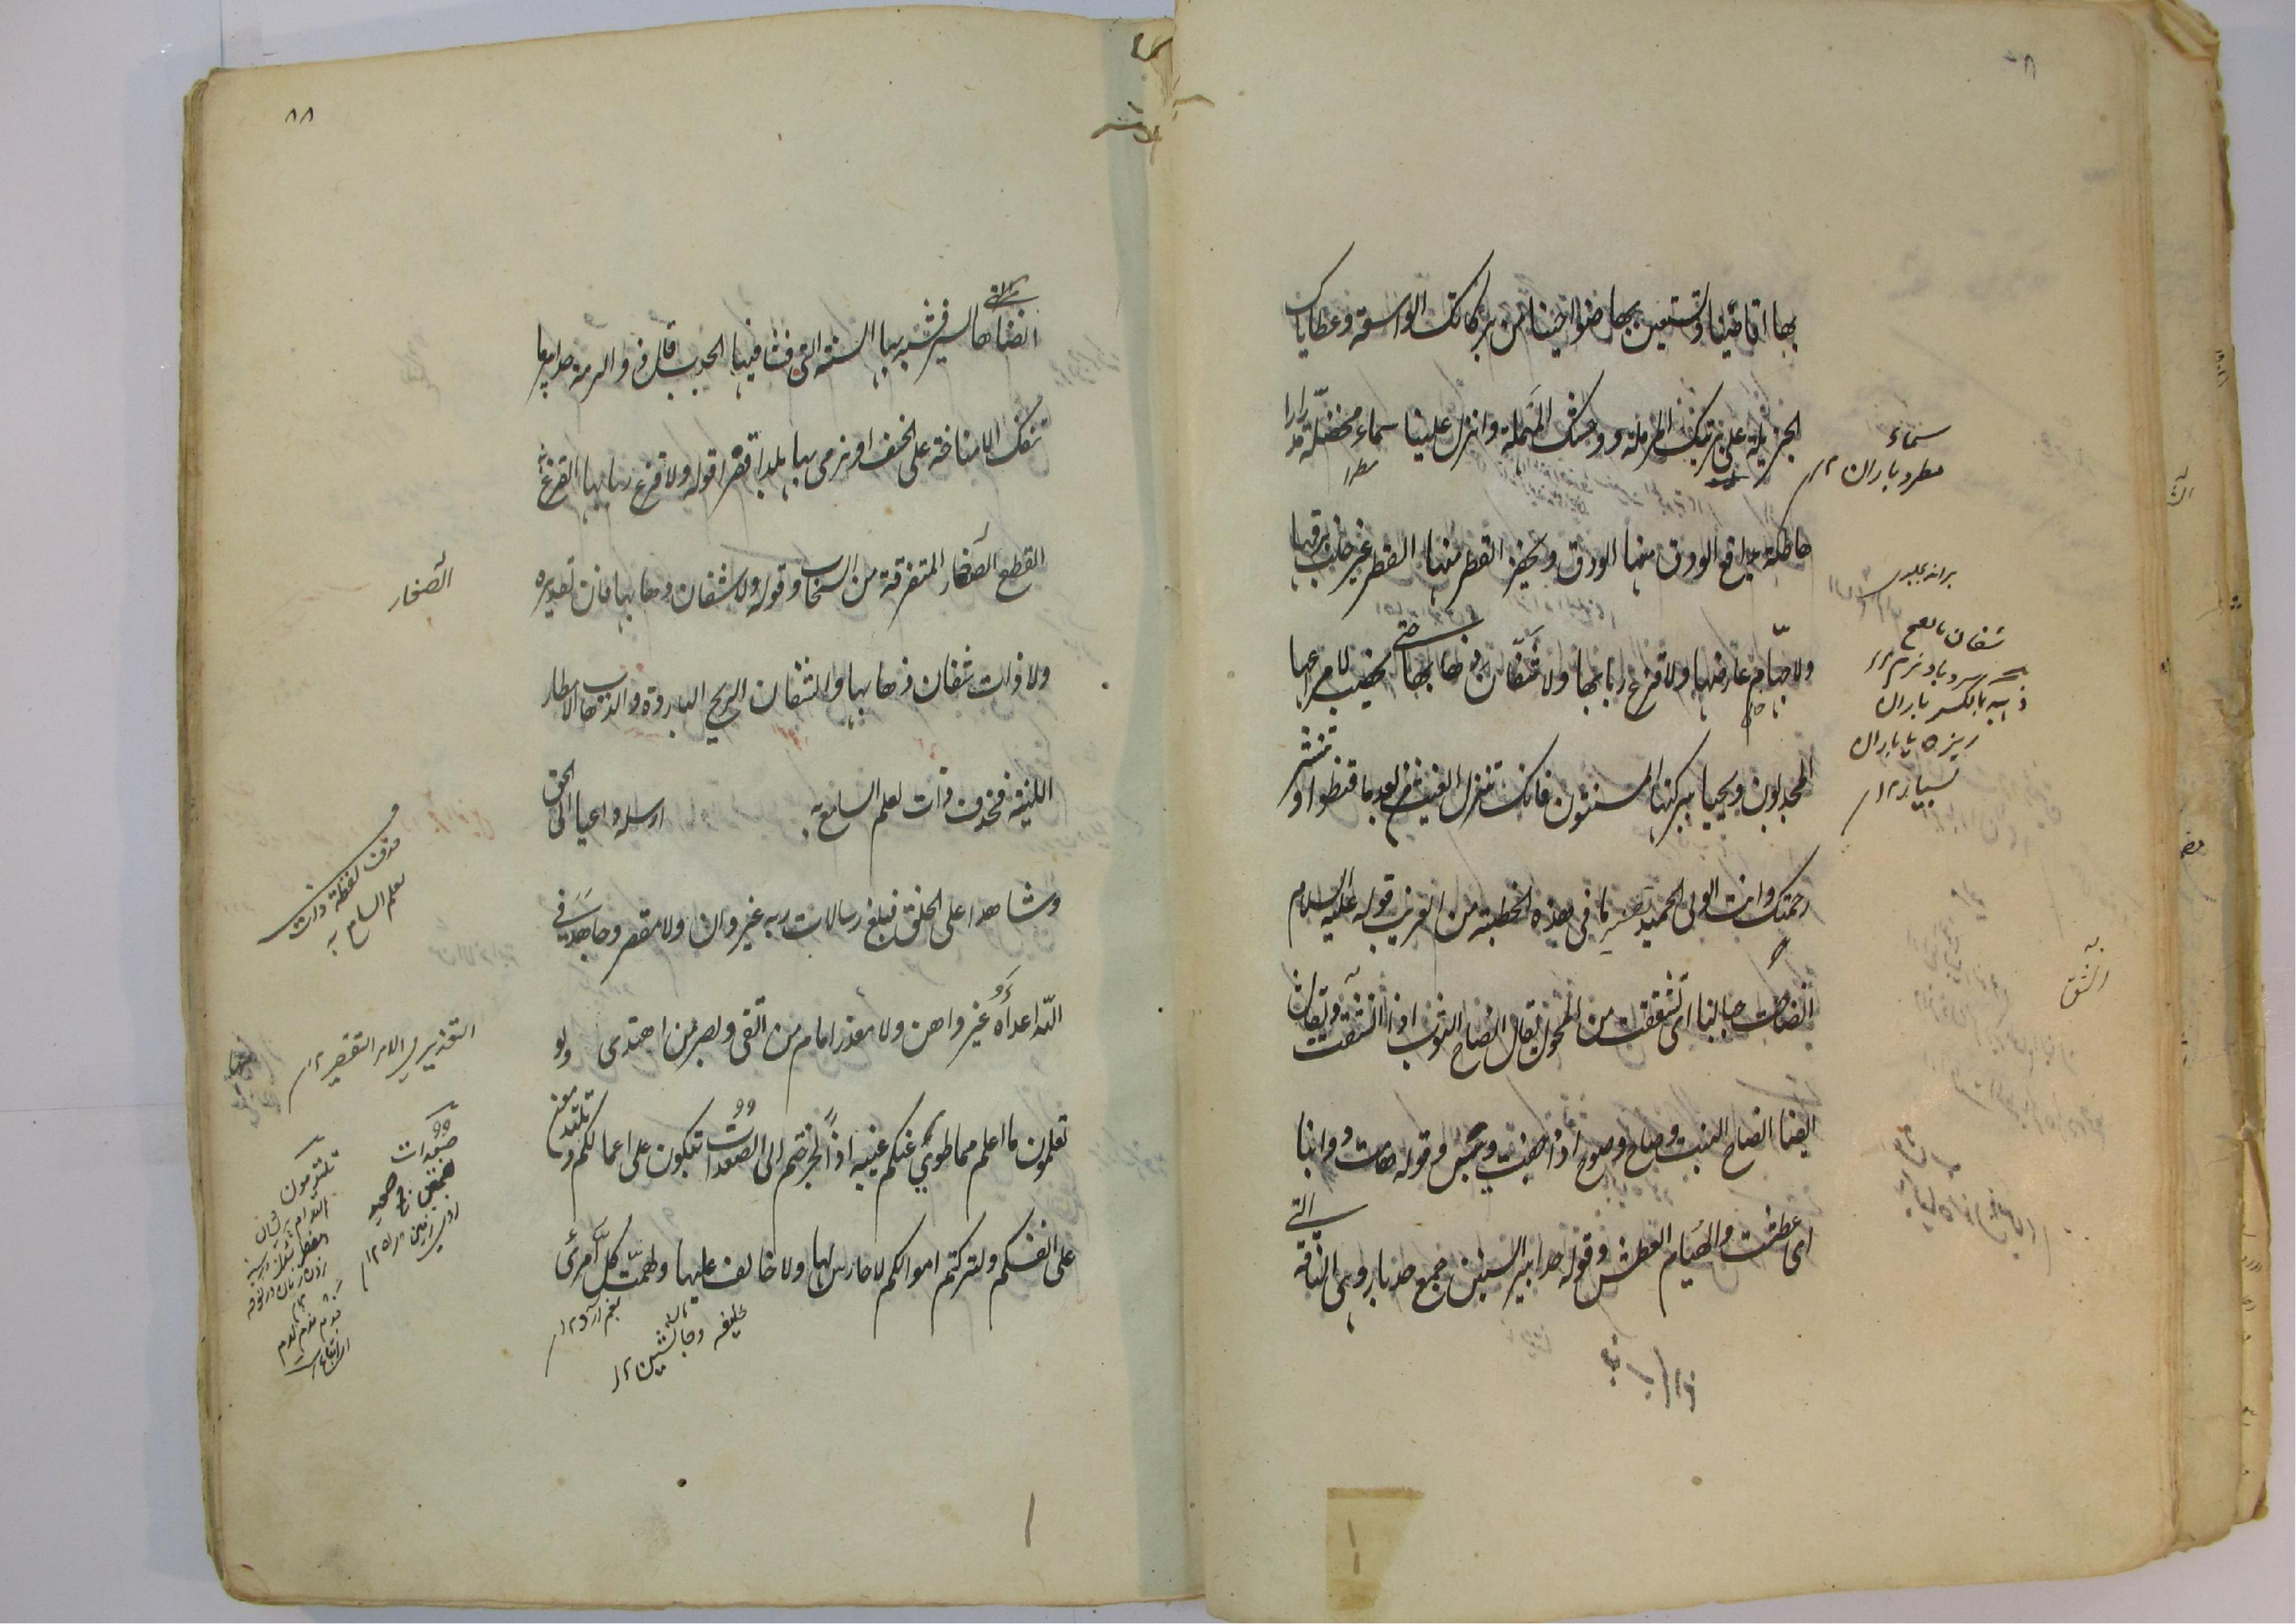 بها اقاصينا وتستعين بها ضواحينا من بركاتك الواسعة وعطاياك
الجزيلة على بريتك المرملة ووحشك المهملة وانزل علينا سماء مخضلة مدرارا
هاطلة يدافع الودق منها الودق ويحفز القطر منها القطر غير خلب برقها
ولا جهام عارضها ولا قزع ربابها ولا شفان ذهابها حتى يخصب لامراعها
المجدبون ويحيا ببركتها المسنتون فانك تنزل الغيث من بعد ما قنطوا وتنشر
رحمتك وانت الولى الحميد تفسير ما فى هذه الخطبة من الغريب قوله عليه السلام
انصاحت جبالنا اى تشققت من المحول يقال انصاح الثوب اذا انشق ويقال
ايضا انصاح النبت وصاح وصوح اذا جف ويبس وقوله هامت دوابنا
اى عطشت والهيام العطش وقوله حدابير السنين جمع حدبار وهى الناقة التى
سماء
مطر و باران ١٢
مطرا
شفان بالفتح
سرد باد نرم ١٢
ذهبه بالكسر باران
ريزه يا باران
بسيار ١٢
انشق
٨٨
انضاها السير فشبه بها السنة التى فشا فيها الجدب قال ذو الرمة حدابير ما
تنفك الا مناخة على الخسف او نرمى بها بلدا قفرا قوله ولا قزع ربابها القزع
القطع الصغار المتفرقة من السحاب وقوله ولا شفان ذهابها فان تقديره
ولا ذات شفان ذهابها والشفان الريح الباردة والذهاب الامطار
اللينة فحذف ذات لعلم السامع به ارسله داعيا الى الحق
وشاهدا على الخلق فبلغ رسالات ربه غير وان ولا مقصر وجاهد فى
الله اعداءه غير واهن ولا معذر امام من اتقى وبصر من اهتدى ولو
تعلمون ما اعلم مما طوى عنكم غيبه اذا لخرجتم الى الصعدات تبكون على اعمالكم وتلتدمون
على انفسكم ولتركتم اموالكم لا حارس لها ولا خالف عليها ولهمت كل امرئ
الصغار
حذف لفظة ذات
لعلم السامع به
التعذير فى الامر التقصير ١٢
صعدات
جمع صعيد
روى زمين
تلتدمون
خليفه و جانشين ١٢